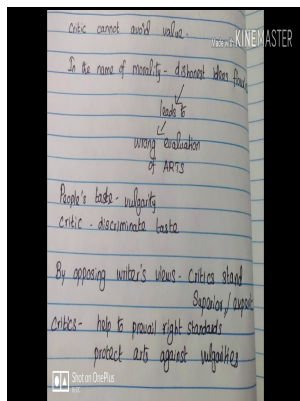 Critic cannot avoid value -
Made with KINEMASTER
In the name of morality - dishonest ideas
leads to
wrong evaluation
of ARTS
People's taste - vulgarity
critic - discriminate taste
By opposing writer's views - critics stand
Superior /
Critics - help to prevail right standards
protect arts against vulgarities
Shot on OnePlus